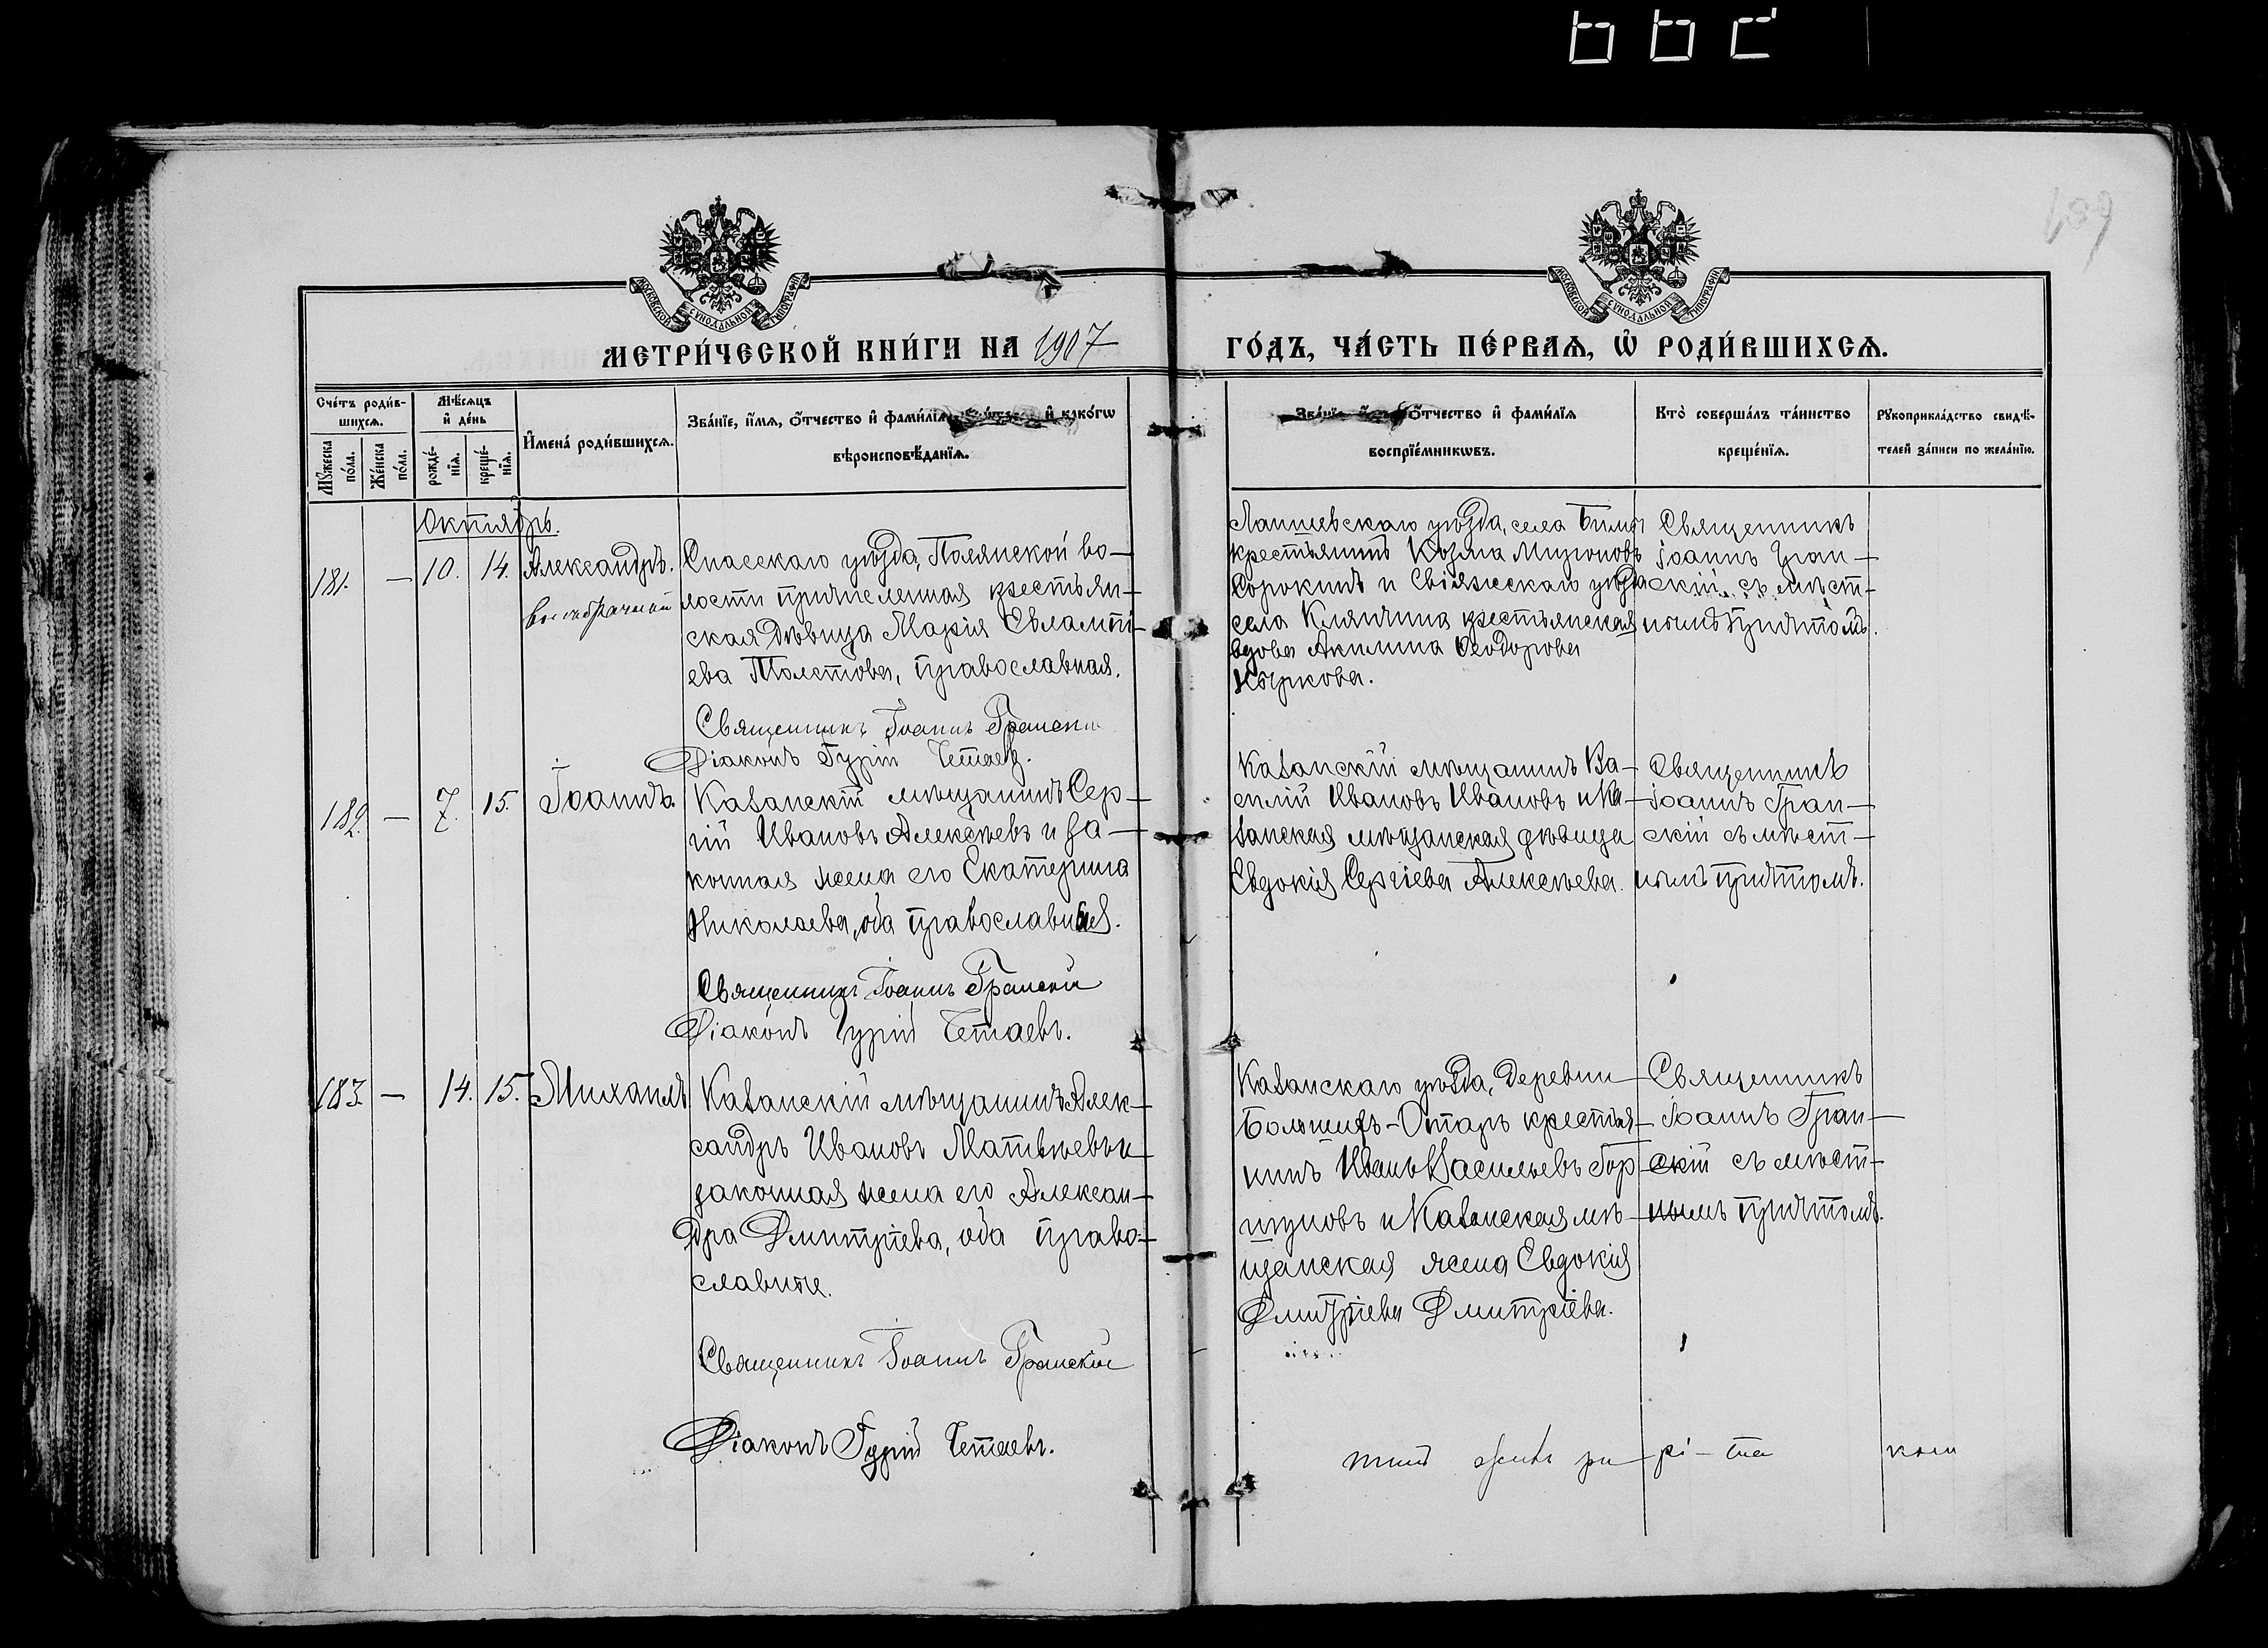 659
МОСКОВСКОЙ СѴНОДАЛЬНОЙ ТИПОГРАФІИ
МОСКОВСКОЙ СѴНОДАЛЬНОЙ ТИПОГРАФІИ
МЕТРИ́ЧЕСКОЙ КНИ́ГИ НА 1907
ГО́ДЪ, ЧА́СТЬ ПЕ́РВАѦ, Ѡ҆ РОДИ́ВШИХСѦ.
Сче́тъ роди́в-
шихсѧ.
Мꙋ́жеска
по́ла.
Же́нска
по́ла.
Мѣ́сѧцъ
и҆ де́нь
рожде́-
нїѧ.
креще́-
нїѧ.
И҆мена̀ роди́вшихсѧ.
Зва́нїе, и҆́мѧ, ѻ҆́тчество и҆ фами́лїѧ и҆ како́гѡ
вѣроисповѣ́данїѧ.
Зва́нїе, ѻ҆́тчество и҆ фами́лїѧ
воспрїе́мникѡвъ.
Кто̀ соверша́лъ та́инство
креще́нїѧ.
Рꙋкоприкла́дство свидѣ́-
телей за́писи по жела́нїю.
Октябрь.
181. — 10. 14. Александръ.
внѣбрачный
Спасскаго уѣзда, Полянской во-
лости причисленная крестьян-
ская дѣвица Марія Евлампі-
ева Толстова, православная.
Священникъ Іоаннъ Грански
Діаконъ Гурій Четаевъ.
Лаишевскаго уѣзда, села
крестьянинъ Козма
Сорокинъ и Свіяжскаго уѣзда
села Ключина крестьянская
вдова Акилина Ѳеодорова
Священникъ
Іоаннъ Гран-
скій съ мѣст-
нымъ причтомъ.
182. — 7. 15. Іоаннъ.
Казанскій мѣщанинъ Сер-
гій Ивановъ Алексѣевъ и за-
конная жена его Екатерина
Николаева, оба православныя.
Священникъ Іоаннъ Гранскій
Діаконъ Гурій Четаевъ.
Казанскій мѣщанинъ Ва-
силій Ивановъ Ивановъ и Ка-
занская мѣщанская дѣвица
Евдокія Сергіева Алексѣева.
Священникъ
Іоаннъ Гран-
скій съ мѣст-
нымъ причтомъ.
183. — 14. 15. Михаилъ
Казанскій мѣщанинъ Алек-
сандръ Ивановъ Матвѣевъ и
законная жена его Алексан-
дра Димитріева, оба право-
славные.
Священникъ Іоаннъ Гранскій
Діаконъ Гурій Четаевъ.
Казанскаго уѣзда, деревни
Большихъ-Отаръ крестья-
нинъ Иванъ Васильевъ Гор-
шуновъ и Казанская мѣ-
щанская жена Евдокія
Дмитріева Дмитріева.
Священникъ
Іоаннъ Гран-
скій съ мѣст-
нымъ причтомъ.